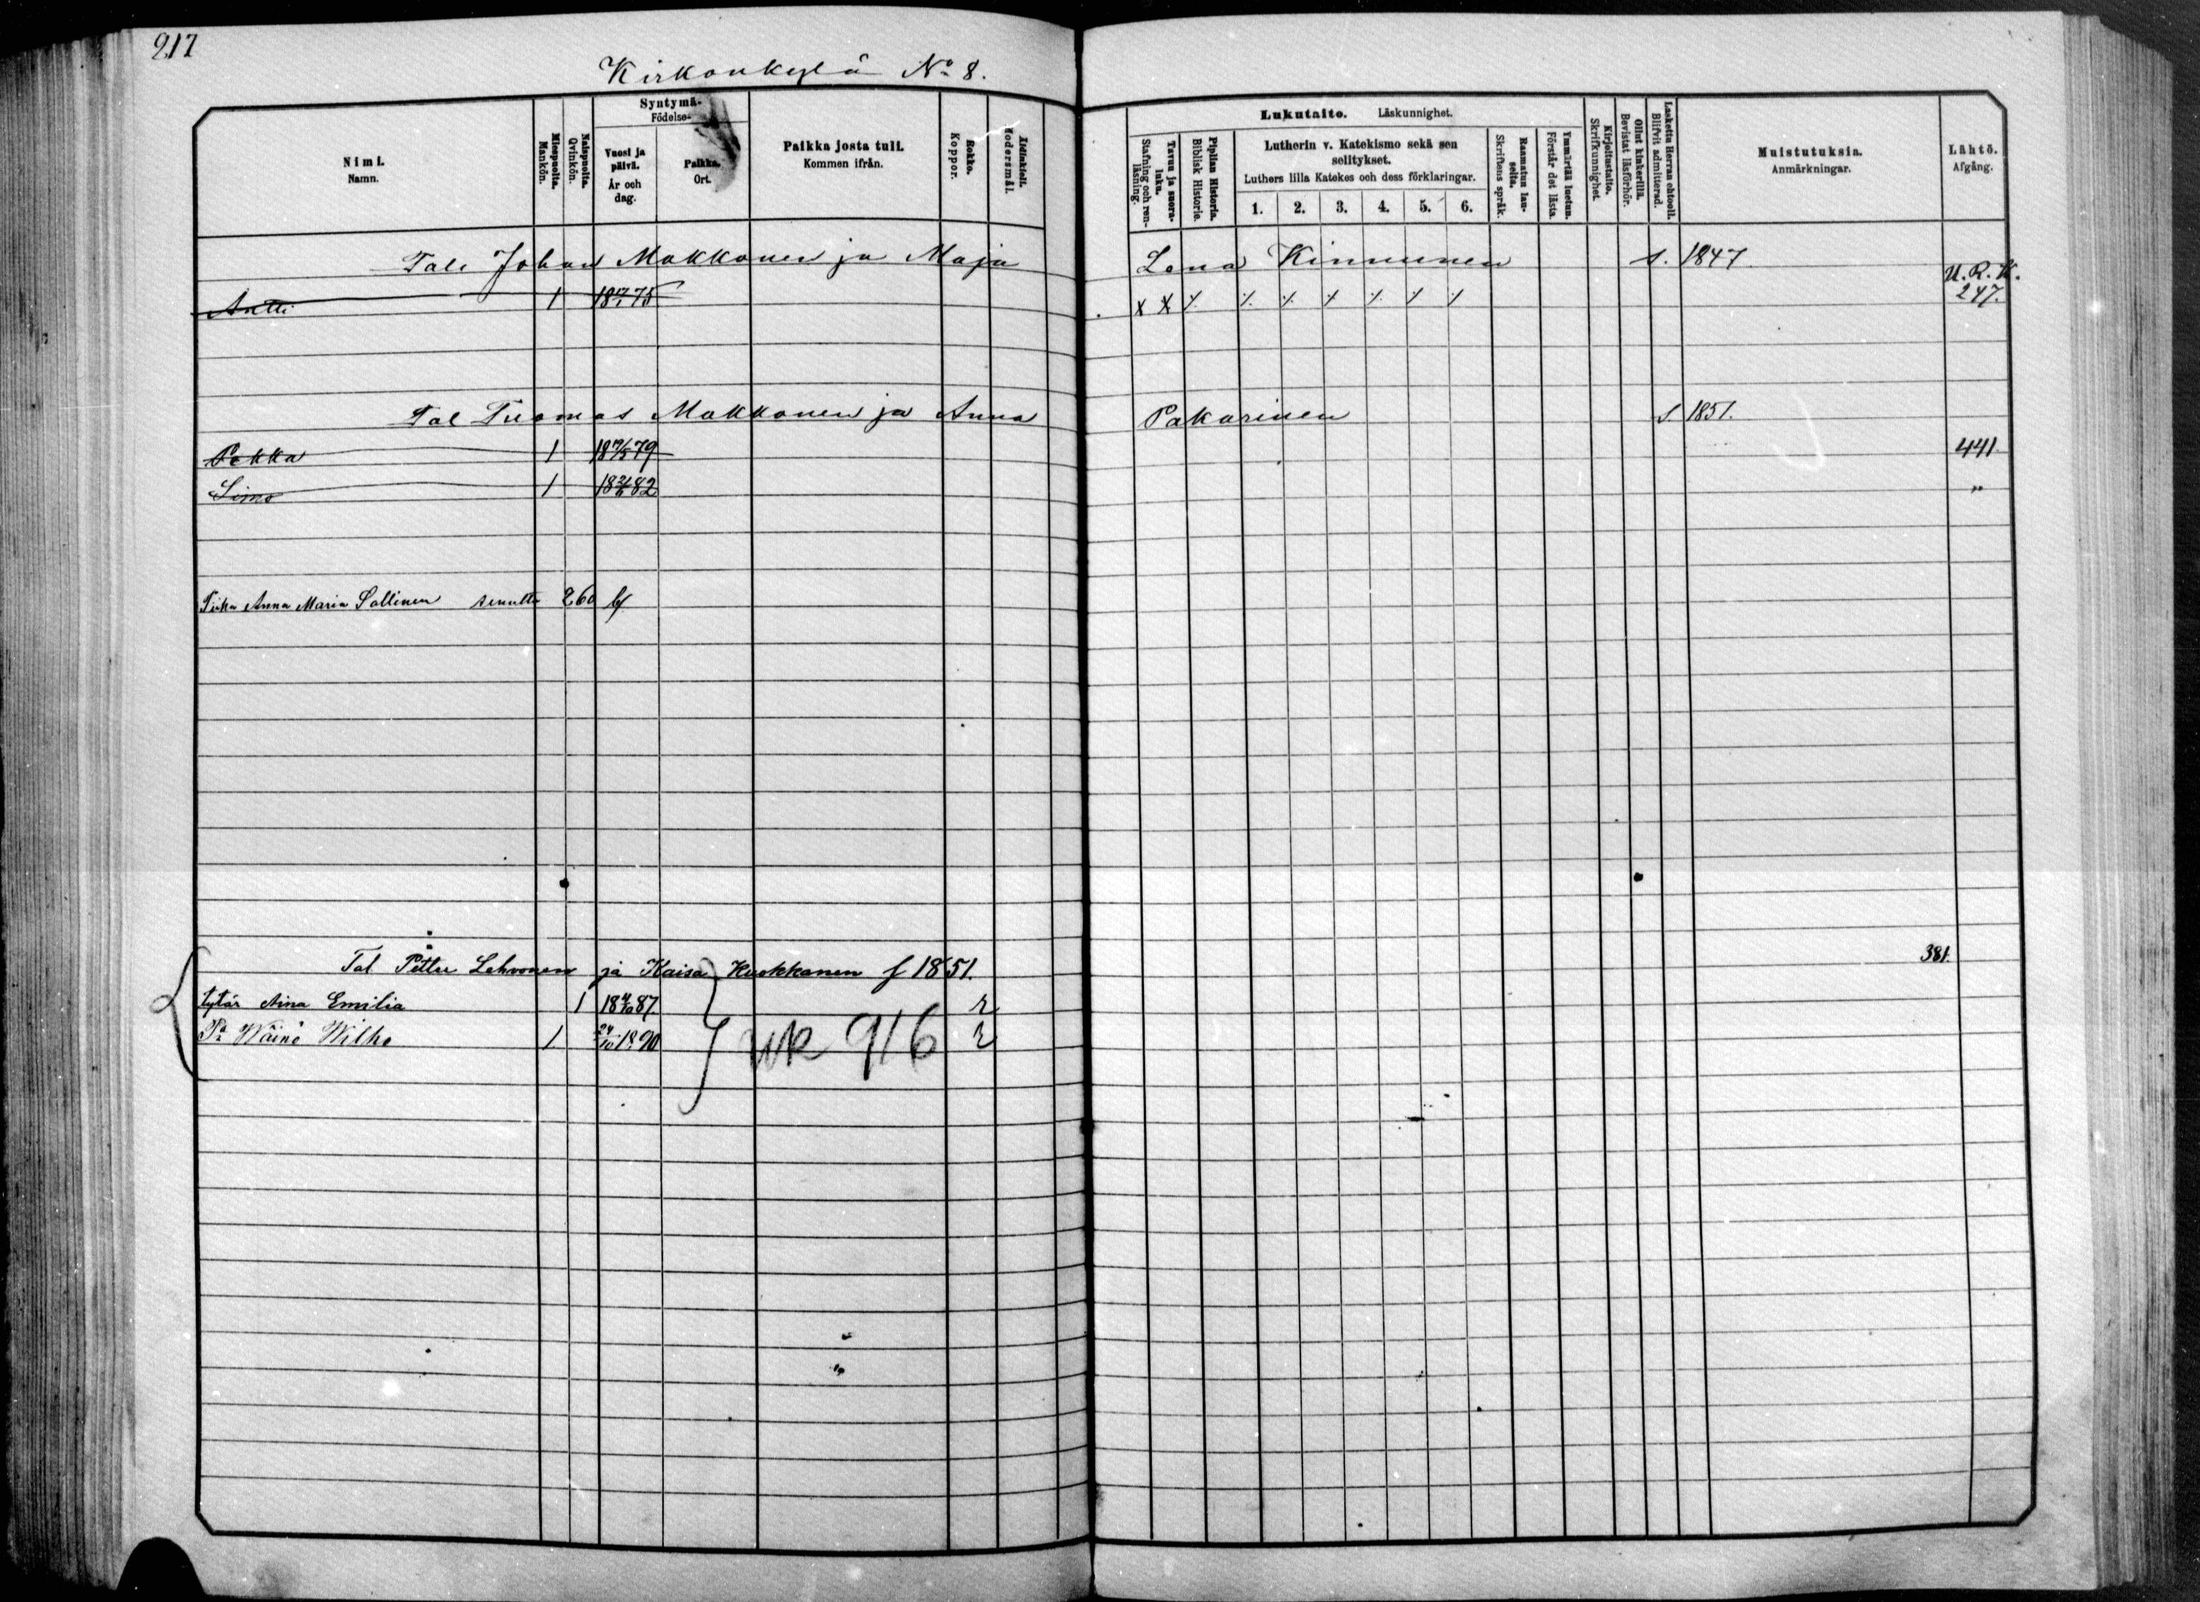 217
Kirkonkylä No 8.
Nimi. Namn.
Miespuolta. Mankön.
Naispuolta. Qvinkön.
Syntymä- Födelse-
Vuosi ja päivä. År och dag.
Paikka. Ort.
Paikka josta tuli. Kommen ifrån.
Rokko. Koppor.
Äidinkieli. Modersmål.
Lukutaito. Läskunnighet.
Tavuu ja suoraluku. Stafning och renläsning.
Piplian Historia. Biblisk Historie.
Lutherin v. Katekismo sekä sen selitykset.
Luthers lilla Katekes och dess förklaringar.
1. 2. 3. 4. 5. 6.
Raamatun lauseita. Skriftens språk.
Ymmärtää luetun. Förstår det lästa.
Kirjoitustaito. Skrifkunnighet.
Ollut kinkerillä. Bevistat läsförhör.
Laskettu Herran ehtooll. Blifvit admitterad.
Muistutuksia. Anmärkningar.
Lähtö. Afgång.
Tal. Johan Makkonen ja Maja Lena Kinnunen s. 1847
Antti 1 18 75 x x U.R.K. 247.
Tal Tuomas Makkonen ja Anna Pakarinen s. 1851.
Pekka 1 18 79 441.
Simo 1 18 82 "
Piika Anna Maria Sallinen 260
Tal Petter Lehvonen ja Kaisa Kuokkanen f 1851. 381.
tytär Aina Emilia 1 18 4/10 87. r
Pa Wäinö Wilho 1 24/10 1890 r
UK 916